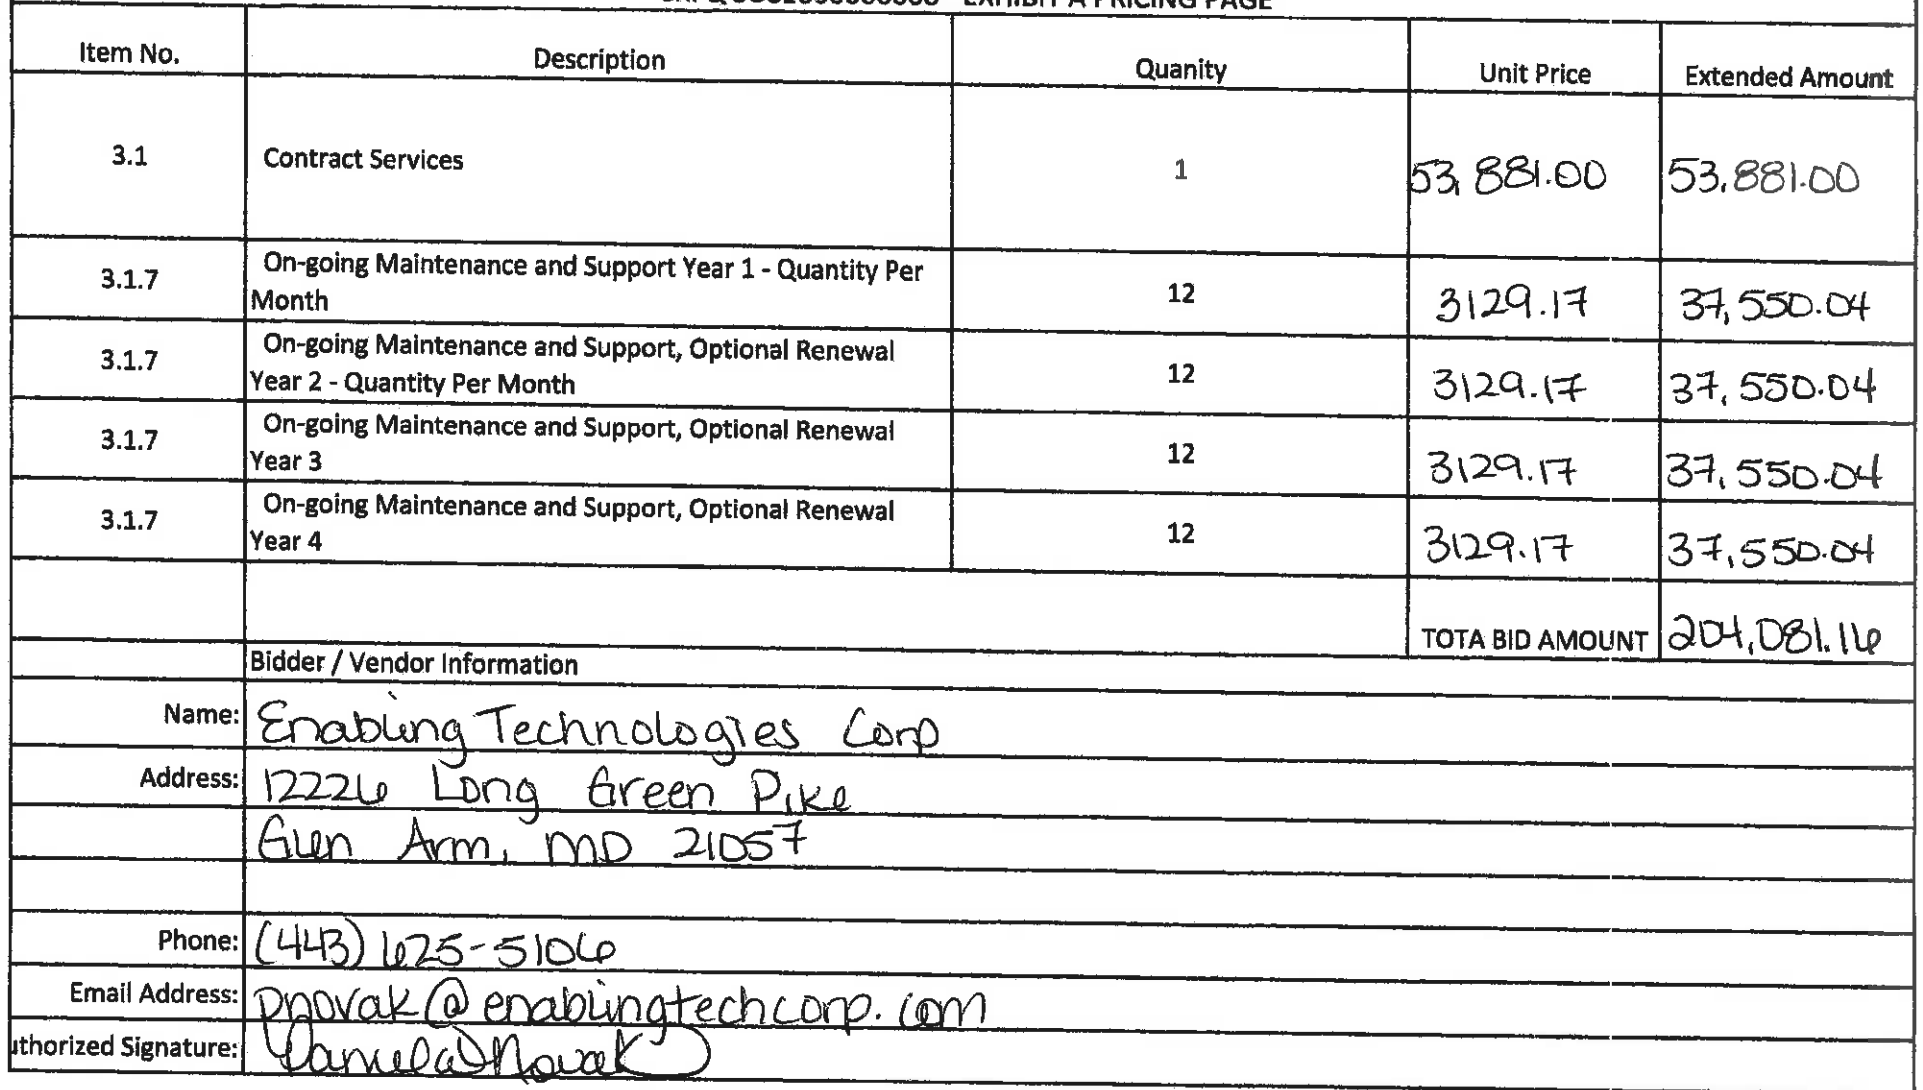 EXHIBIT A PRICING PAGE
Item No. Description Quanity Unit Price Extended Amount
3.1 Contract Services 1 53,881.00 53,881.00
3.1.7 On-going Maintenance and Support Year 1 - Quantity Per
Month 12 3129.17 37,550.04
3.1.7 On-going Maintenance and Support, Optional Renewal
Year 2 - Quantity Per Month 12 3129.17 37,550.04
3.1.7 On-going Maintenance and Support, Optional Renewal
Year 3 12 3129.17 37,550.04
3.1.7 On-going Maintenance and Support, Optional Renewal
Year 4 12 3129.17 37,550.04
TOTA BID AMOUNT 204,081.16
Bidder / Vendor Information
Name: Enabling Technologies Corp
Address: 12226 Long Green Pike
Glen Arm, MD 21057
Phone: (443) 625-5106
Email Address: pnovak@enablingtechcorp.com
uthorized Signature: Novak